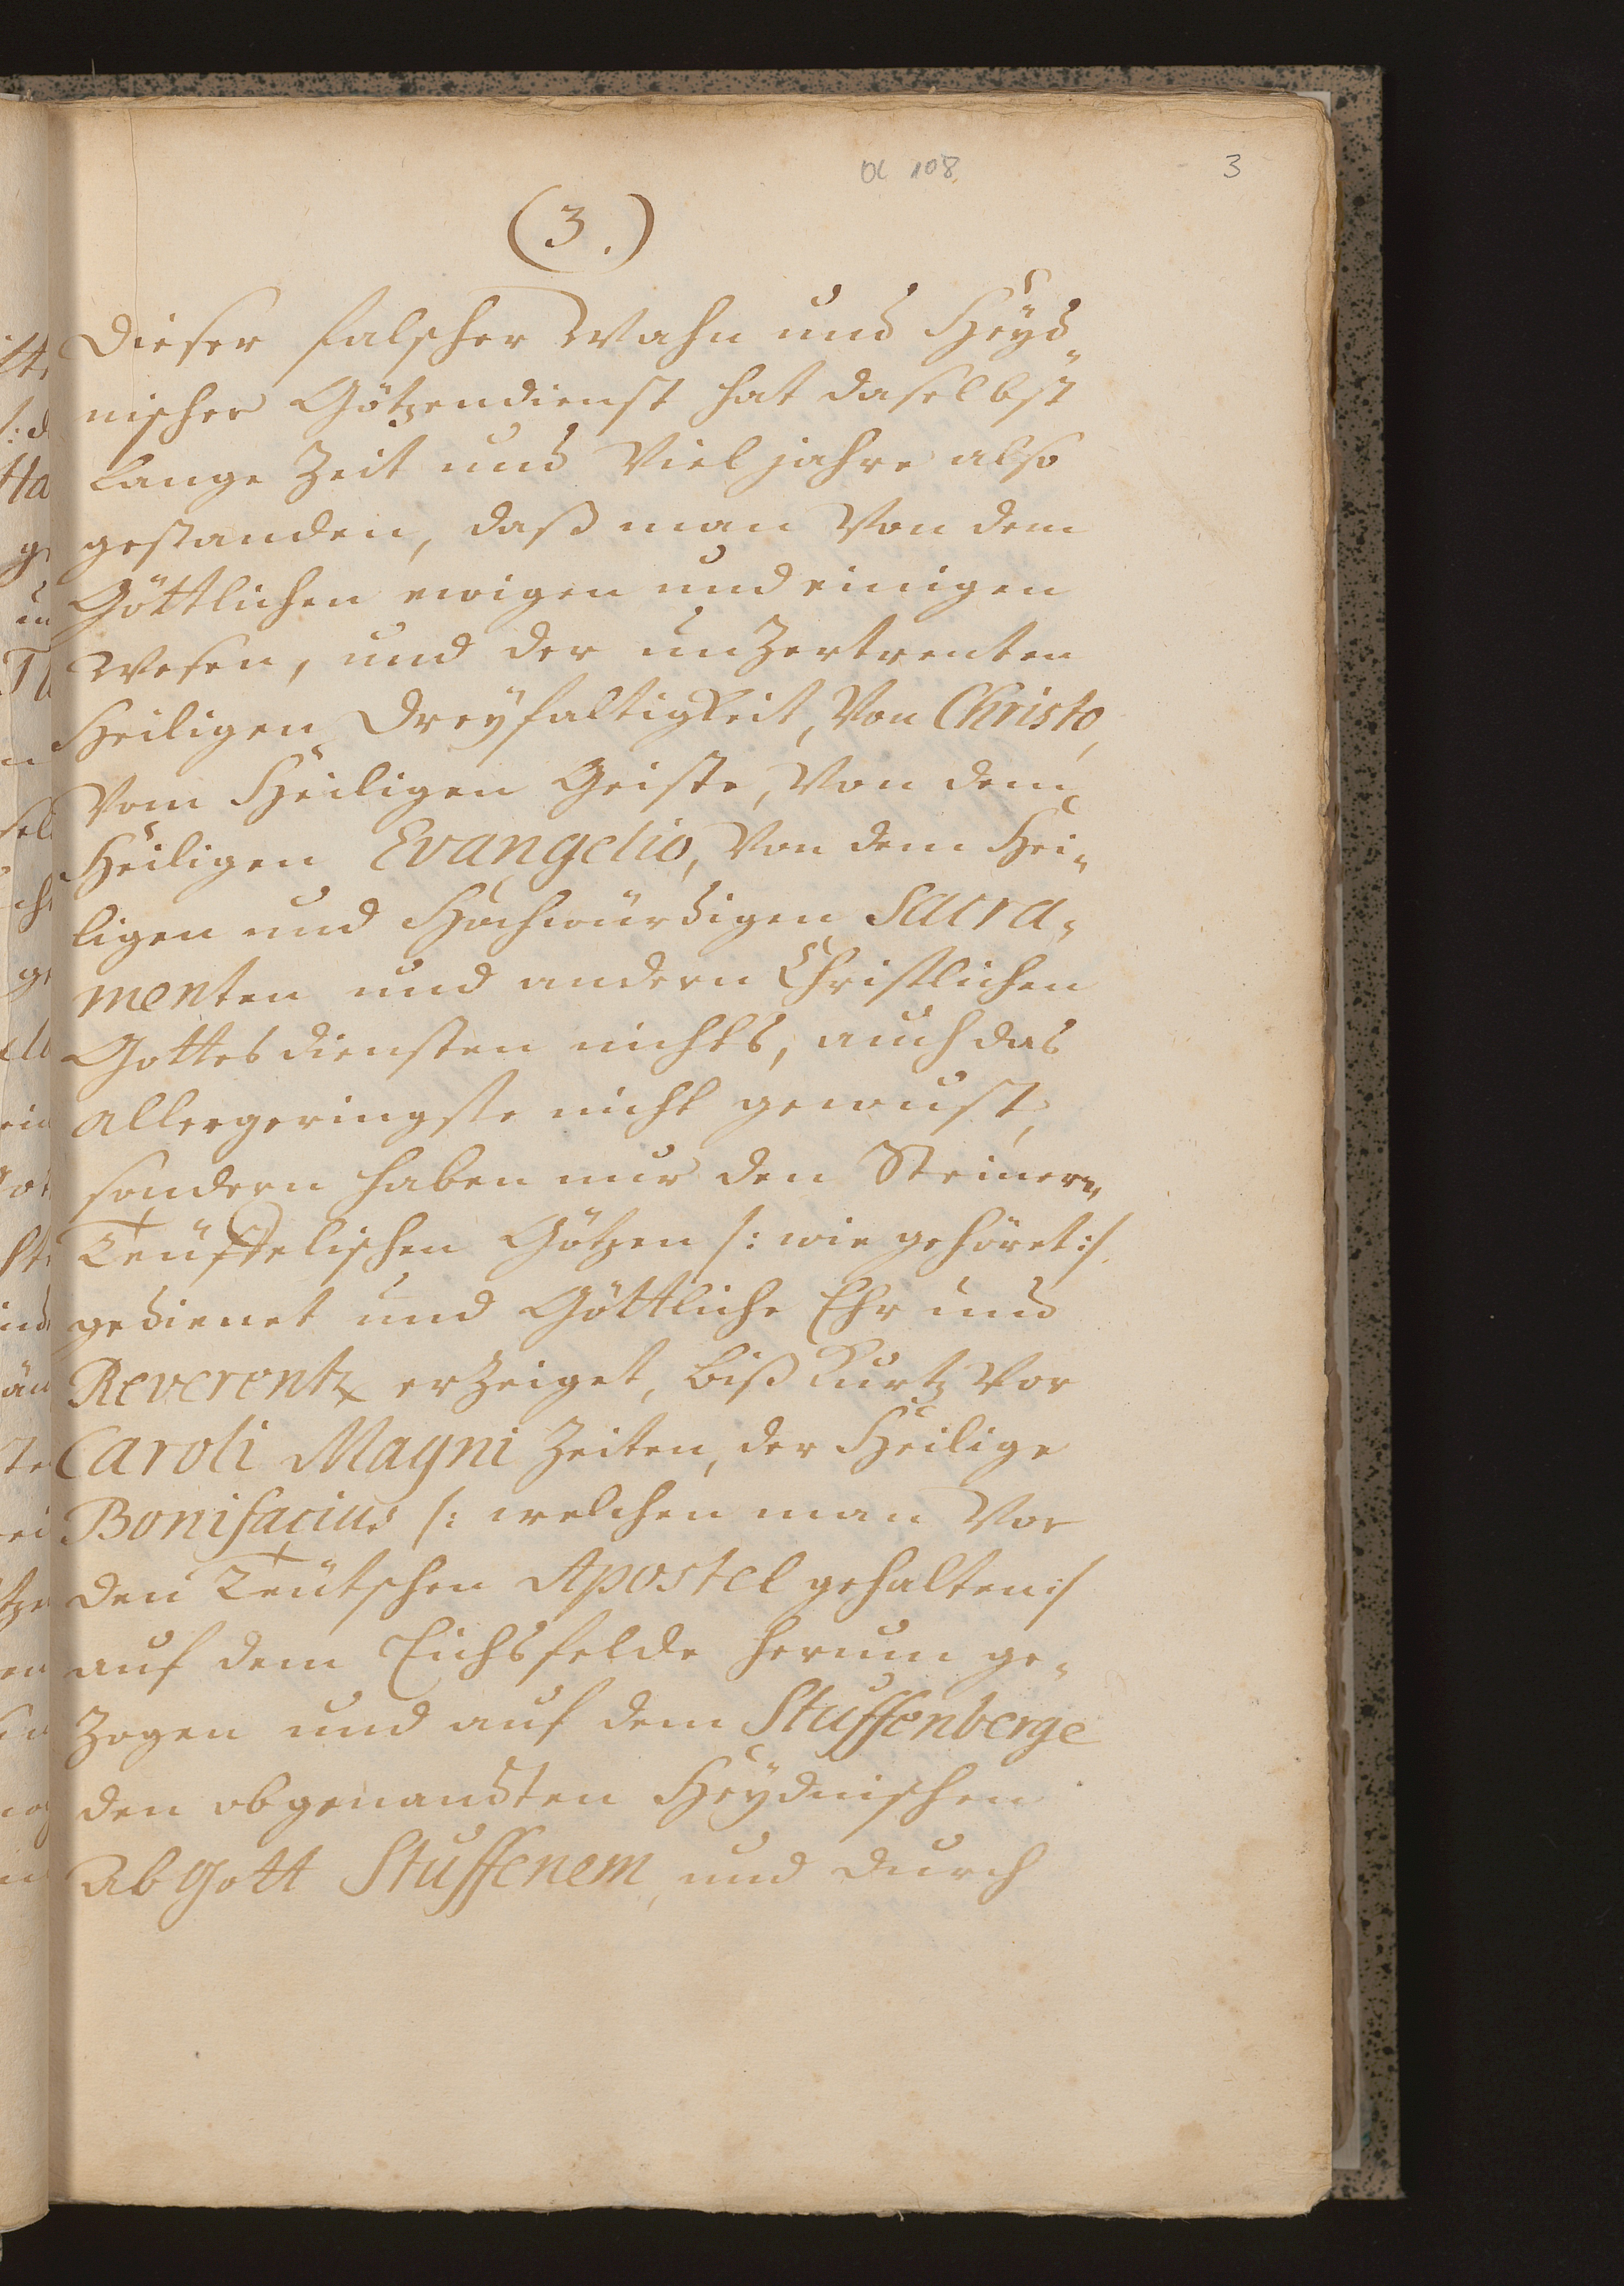 OC 108.
3
(3.)
Dieser falscher Wahn und Heyd„
nischer Götzendienst hat daselbst
Lange Zeit und Viel jahre also
gestanden, daß man Von dem
Göttlichen ewigen und einigen
Wesen, und der unZertrenten
Heiligen Dreyfaltigkeit, Von Christo,
Vom Heiligen Geiste, Von dem
Heiligen Evangelio, Von dem Hei„
ligen und Hochwürdigen Sacra„
menten und andern Christlichen
Gottes diensten nichts, auch das
allergeringste nicht gewust,
sondern haben nur den Steinern„
Teüffelischen Götzen /: wie gehöret :/
gedienet und Göttliche Ehr und
Reverentz erZeiget, biß Kurtz Vor
Caroli Magni Zeiten, der Heilige
Bonifacius /: welchen man Vor
den Teütschen Apostel gehalten :/
auf dem Eichsfelde herum ge„
Zogen und auf dem Stuffenberge
den obgenandten Heydnischen
AbGott Stuffenem, und durch